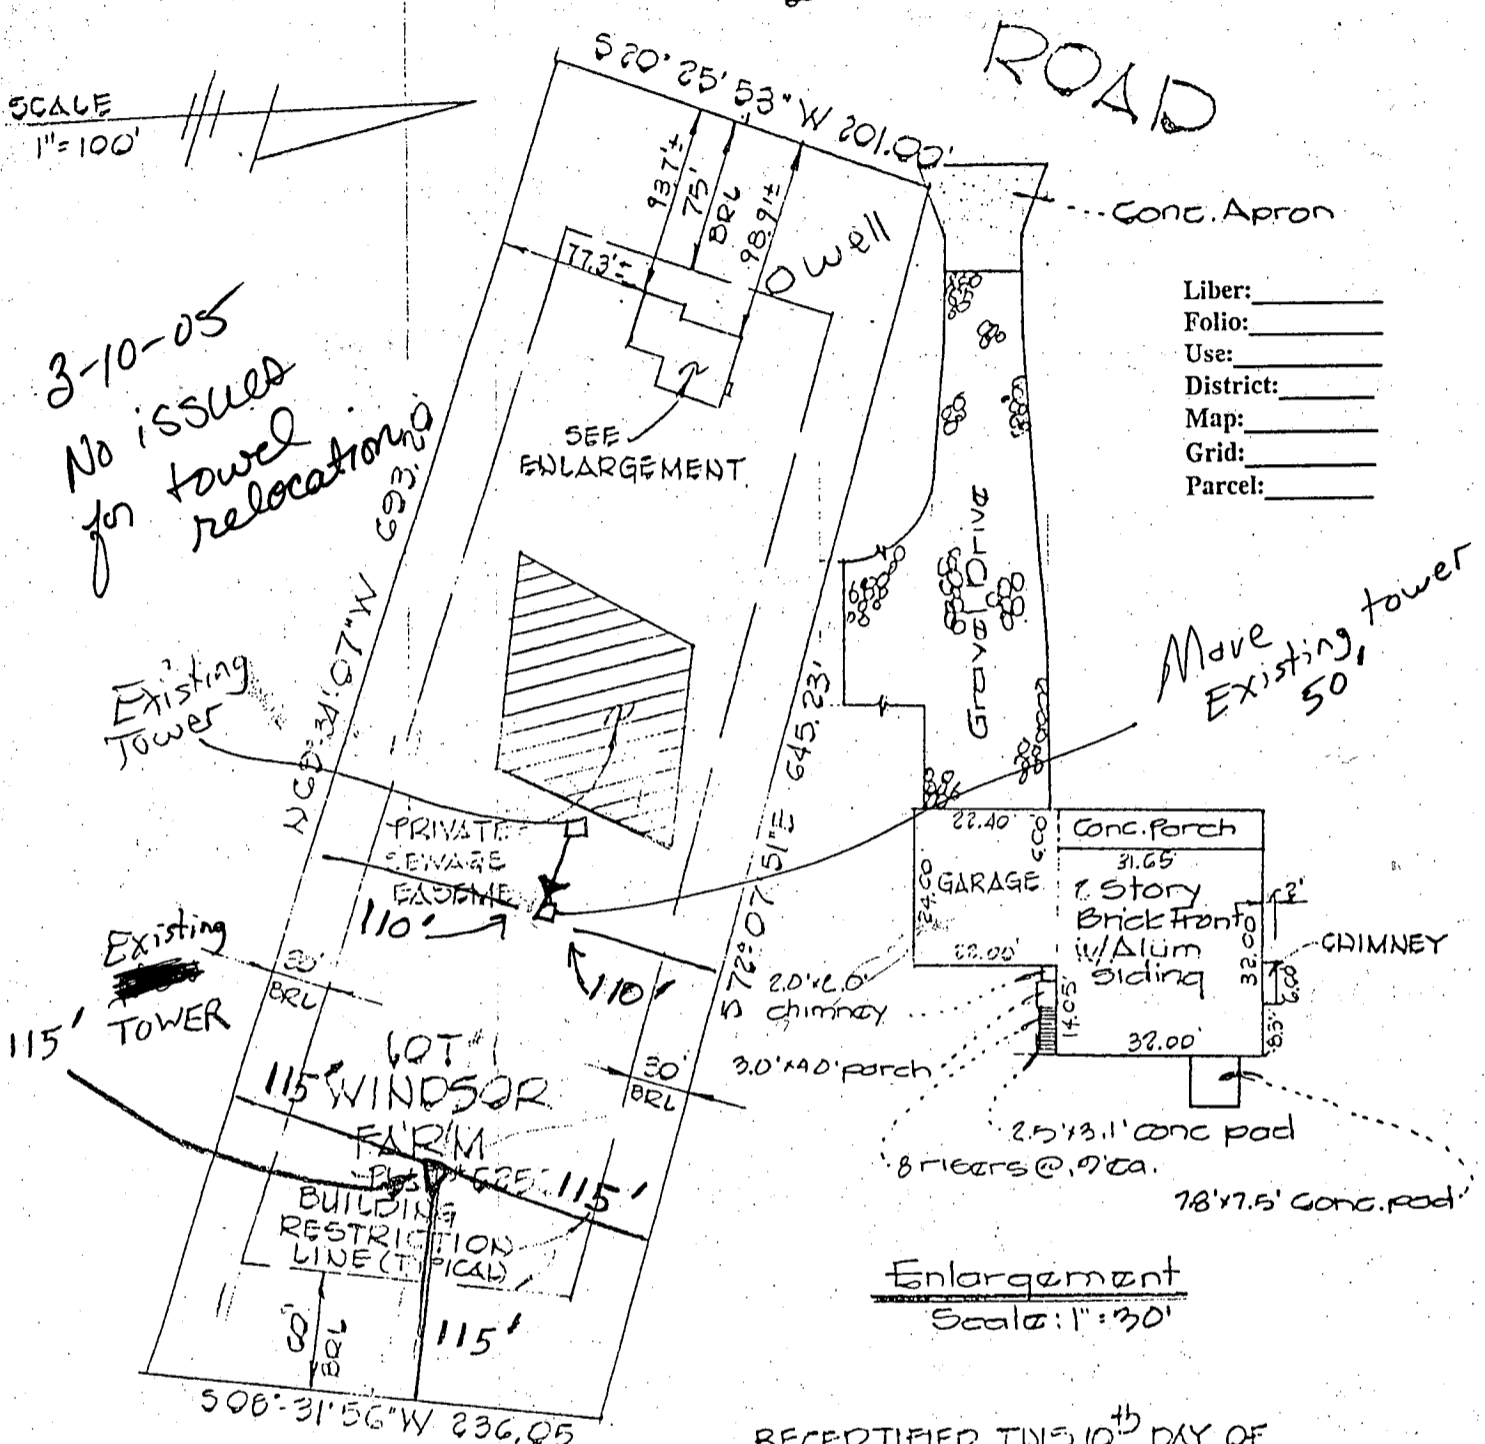 ROAD
SCALE
1"=100'
S 20° 25' 53" W 201.00'
93.7'±
75'
BRL
98.9'±
77.3'±
well
Conc. Apron
Liber:
Folio:
Use:
District:
Map:
Grid:
Parcel:
3-10-05
No issues
for towel
relocation
SEE
ENLARGEMENT
Gravel Drive
Move
Existing tower
50'
Existing
Tower
34' 07" W 693.
S 72° 07' 51" E 645.23'
PRIVATE
SEWAGE
EASEME
110'
110'
Existing
TOWER
115'
30'
BRL
30'
BRL
LOT 1
115' WINDSOR
FARM
115'
BUILDING
RESTRICTION
LINE (TYPICAL)
60'
BRL
115'
S 08°-31'56" W 236.05
22.40
6.00
Conc. Porch
31.65
24.00
GARAGE
2 Story
Brick Front
w/Alum
siding
2'
32.00
CHIMNEY
6.00
8.3'
22.00'
2.0'x6.0'
chimney
14.05'
32.00'
3.0'x4.0' porch
2.5'x3.1' conc pad
8 risers @ .7' ea.
7.8'x7.5' Conc. pad
Enlargement
Scale: 1": 30'
RECERTIFIED THIS 10th DAY OF